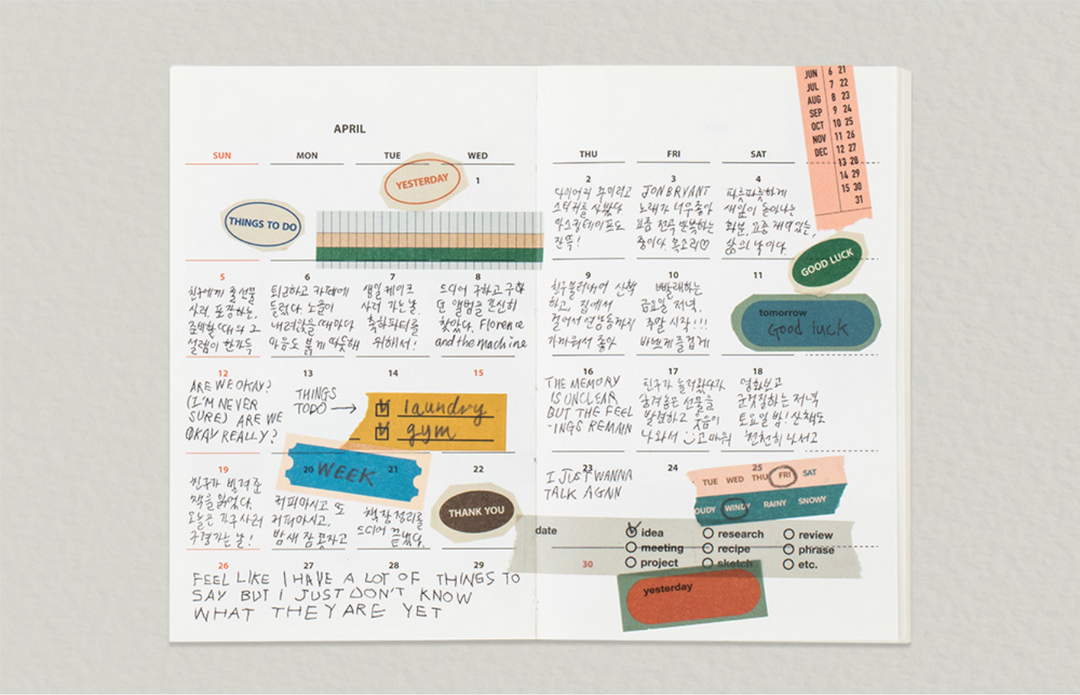 APRIL
SUN MON TUE WED THU FRI SAT
YESTERDAY
THINGS TO DO
JUN 6 21
JUL 7 22
AUG 8 23
SEP 9 24
OCT 10 25
NOV 11 26
DEC 12 27
13 28
14 29
15 30
31
1
2
다이어리 꾸미려고
스티커를 샀다
마스킹테이프도
잔뜩!
3
JON BRYANT
노래가 너무 좋아
요즘 전곡 반복하는
중이다. 목소리♡
4
파릇파릇하게
새잎이 돋아나는
화분. 요즘 재미있는,
삶의 낙이다.
GOOD LUCK
5
친구에게 줄 선물
사러, 포장하는,
준비할 때의 그
설렘이 한가득
6
퇴근하고 카페에
들렀다. 노을이
내려앉을 때마다
마음도 붉게 따뜻해
7
생일 케이크
사러 가는 날.
축하파티를
위해서!
8
드디어 구하고 구하
던 앨범을 온전히
찾았다. Florence
and the machine
9
친구 불러내어 산책
하고, 집에서
걸어서 연남동까지
가까워서 좋아
10
빨래하는
금요일 저녁.
주말 시작!!!
바쁘게 즐겁게
11
tomorrow
Good luck
12
ARE WE OKAY?
(I'M NEVER
SURE) ARE WE
OKAY REALLY?
13
THINGS
TODO →
14
laundry
gym
15
16
THE MEMORY
IS UNCLEAR
BUT THE FEEL
-INGS REMAIN
17
친구가 놀러왔다가
숨겨놓은 선물을
발견하고 웃음이
나와서 고마워
18
영화보고
군것질하는 저녁
토요일 밤! 산책도
천천히 나서고
19
친구가 빌려준
책을 읽었다.
오늘은 가구 사러
구경가는 날!
20
WEEK
커피마시고 또
커피마시고,
밤새 잠 못자고
21
책장정리를
드디어 끝냈다.
22
THANK YOU
23
I JUST WANNA
TALK AGAIN
24
25
TUE WED THU FRI SAT
OUDY WINDY RAINY SNOWY
date
idea research review
meeting recipe phrase
project sketch etc.
26 27 28 29 30
FEEL LIKE I HAVE A LOT OF THINGS TO
SAY BUT I JUST DON'T KNOW
WHAT THEY ARE YET
yesterday